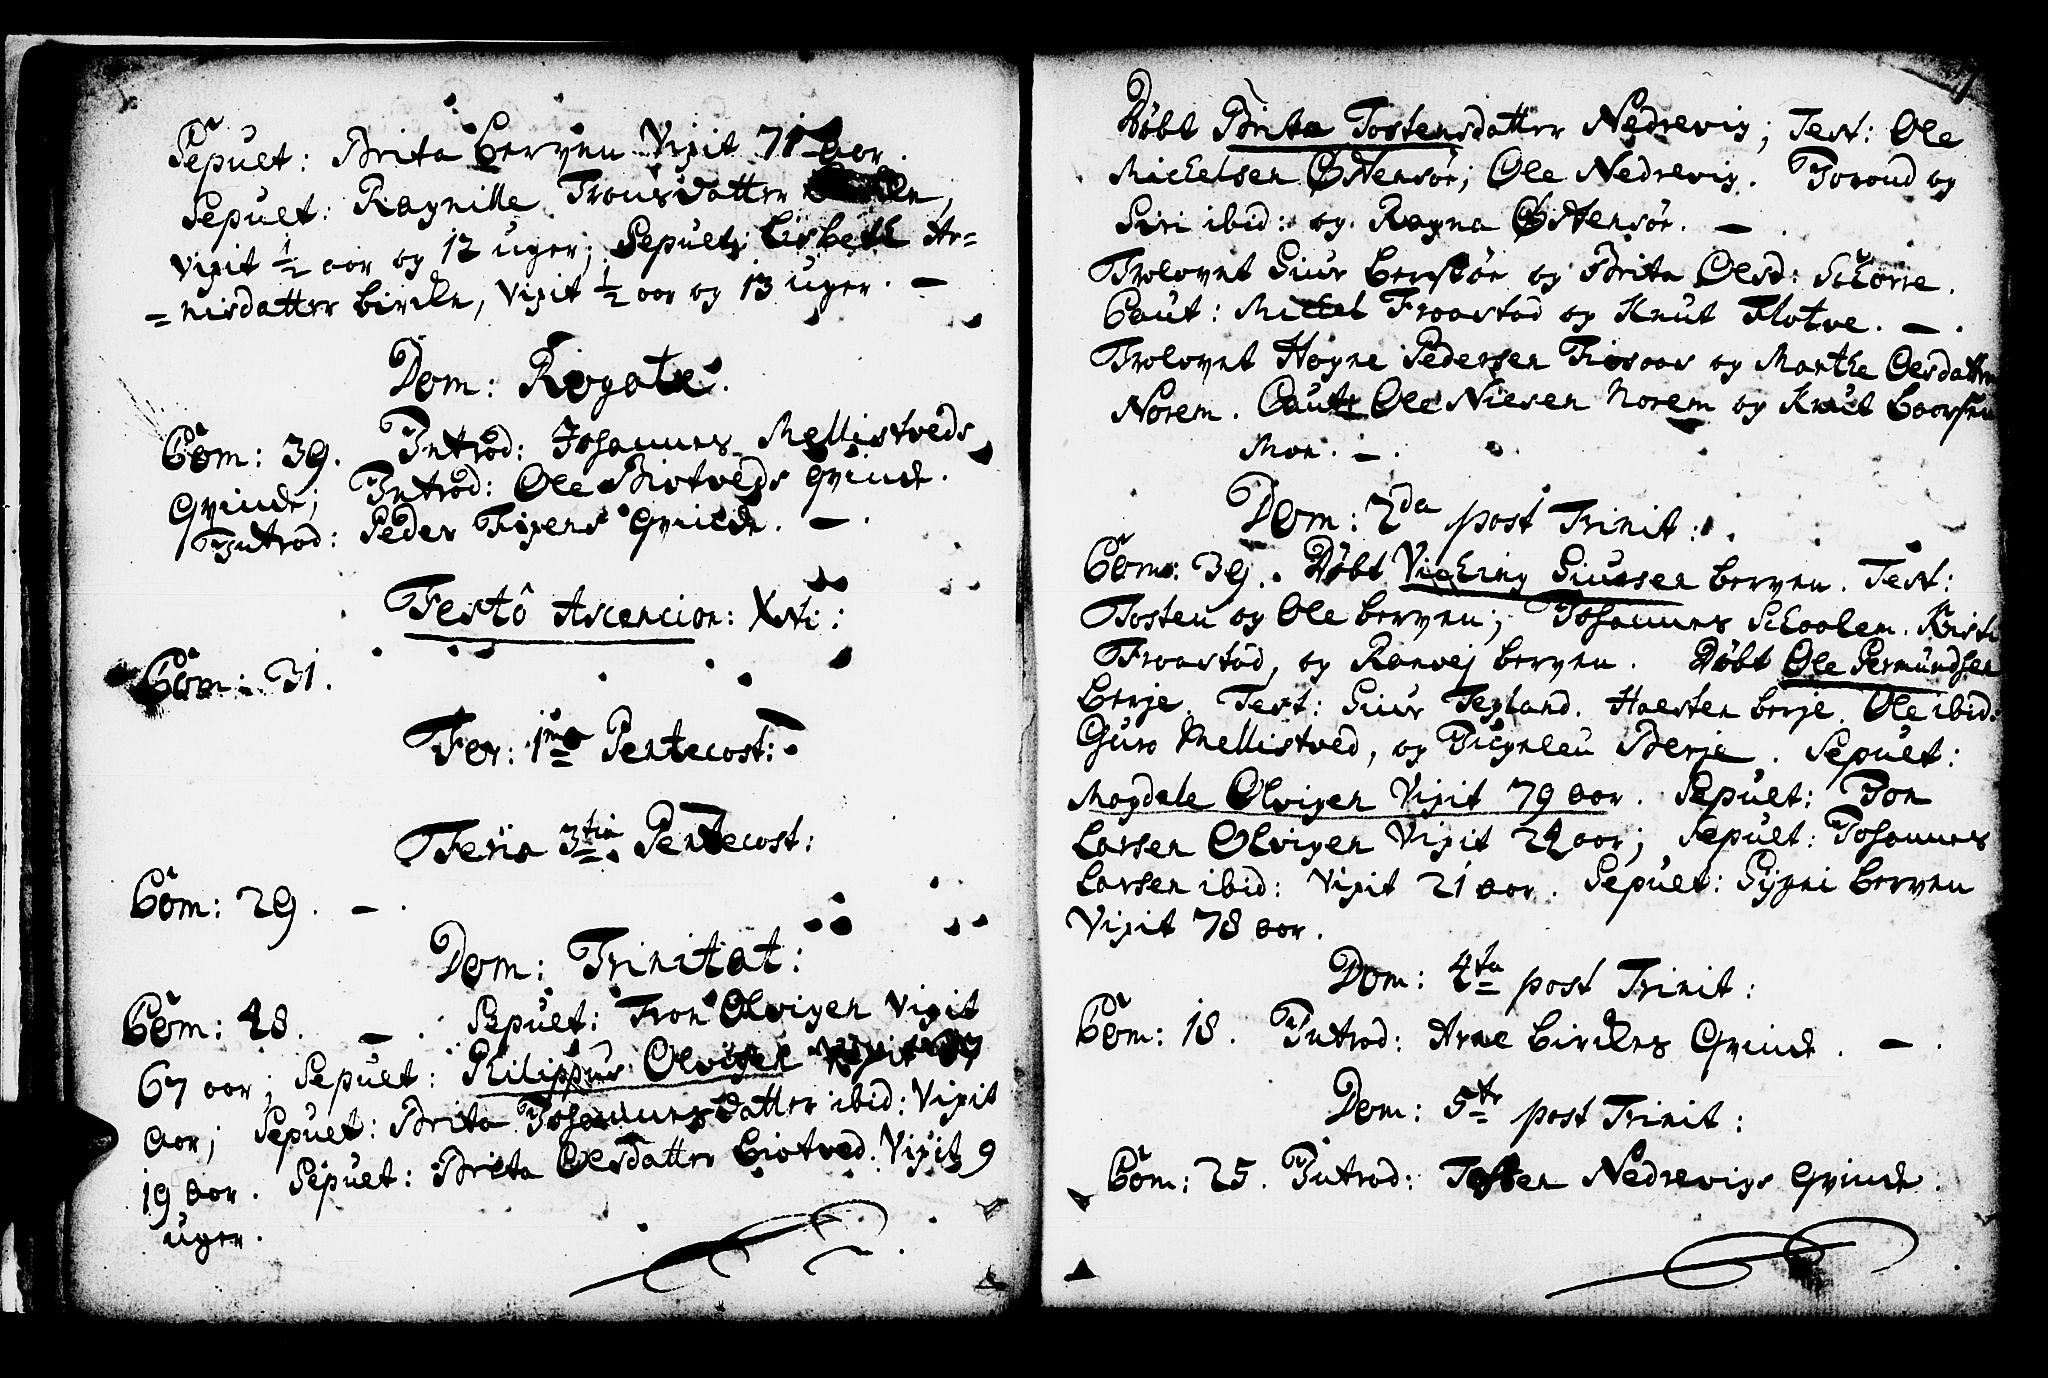 Sepult: Brita Berven Vixit 71 aar.
Sepult: Ragnille Tronsdatter
Vixit ½ aar og 12 uger; Sepult: Lisbeth Ar=
=nisdatter Birchen, Vixit ½ aar og 13 uger. —
Dom: Rogate.
Com: 39. Introd: Johannes Mellistveds
Qvinde; Introd: Ole Biotveds Qvinde.
Introd: Peder Tixens Qvinde. —.
Festo Ascencion: Xsti:
Com: 31.
Fer: 1ma Pentecost:
Feria 3tia Pentecost:
Com: 29. —.
Dom: Trinitat:
Com: 48. —. Sepult: Tron Olvigen Vixit
67 aar; Sepult: Philippus Olvigen Vixit
aar; Sepult: Brita Johannesdatter ibid: Vixit
19 aar. Sepult: Brita Olsdatter Biotved. Vixit 9
uger.
7
Döbt Brita Tostensdatter Nedrevig; Test: Ole
Michelsen Östensöe; Ole Nedrevig. Joroud og
Siri ibid: og Ragna Östensöe. —.
Trolovet Siur Berstöe og Brita Olsd: Schorre.
Caut: Michel Froastad og Knut Flotve. —.
Trolovet Hogne Pedersen Tiosaas og Marthe Olsdatter
Norem. Caut: Ole Nielsen Norem og Knut Laarsen
Moe. —.
Dom: 2da post Trinit:
Com: 39. Döbt Viching Siursen Berven. Test:
Tosten og Ole Berven; Johannes Schoolem. Kristi
Froastad, og Ranvej Berven. Döbt Ole Germundsen
Berje. Test: Siur Tegland. Haesten Berje. Ole ibid:
Guro Mellistved, og Bugnleu Berje. Sepult:
Magdale Olvigen Vixit 79 aar. Sepult: Jon
Larsen Olvigen Vixit 24 aar; Sepult: Johannes
Larsen ibid: Vixit 21 aar. Sepult: Sygni Berven
Vixit 78 aar.
Dom: 4ta post Trinit:
Com: 18. Introd: Arne Birches Qvinde. —.
Dom: 5te post Trinit:
Com: 25. Introd: Tosten Nedrevigs Qvinde.